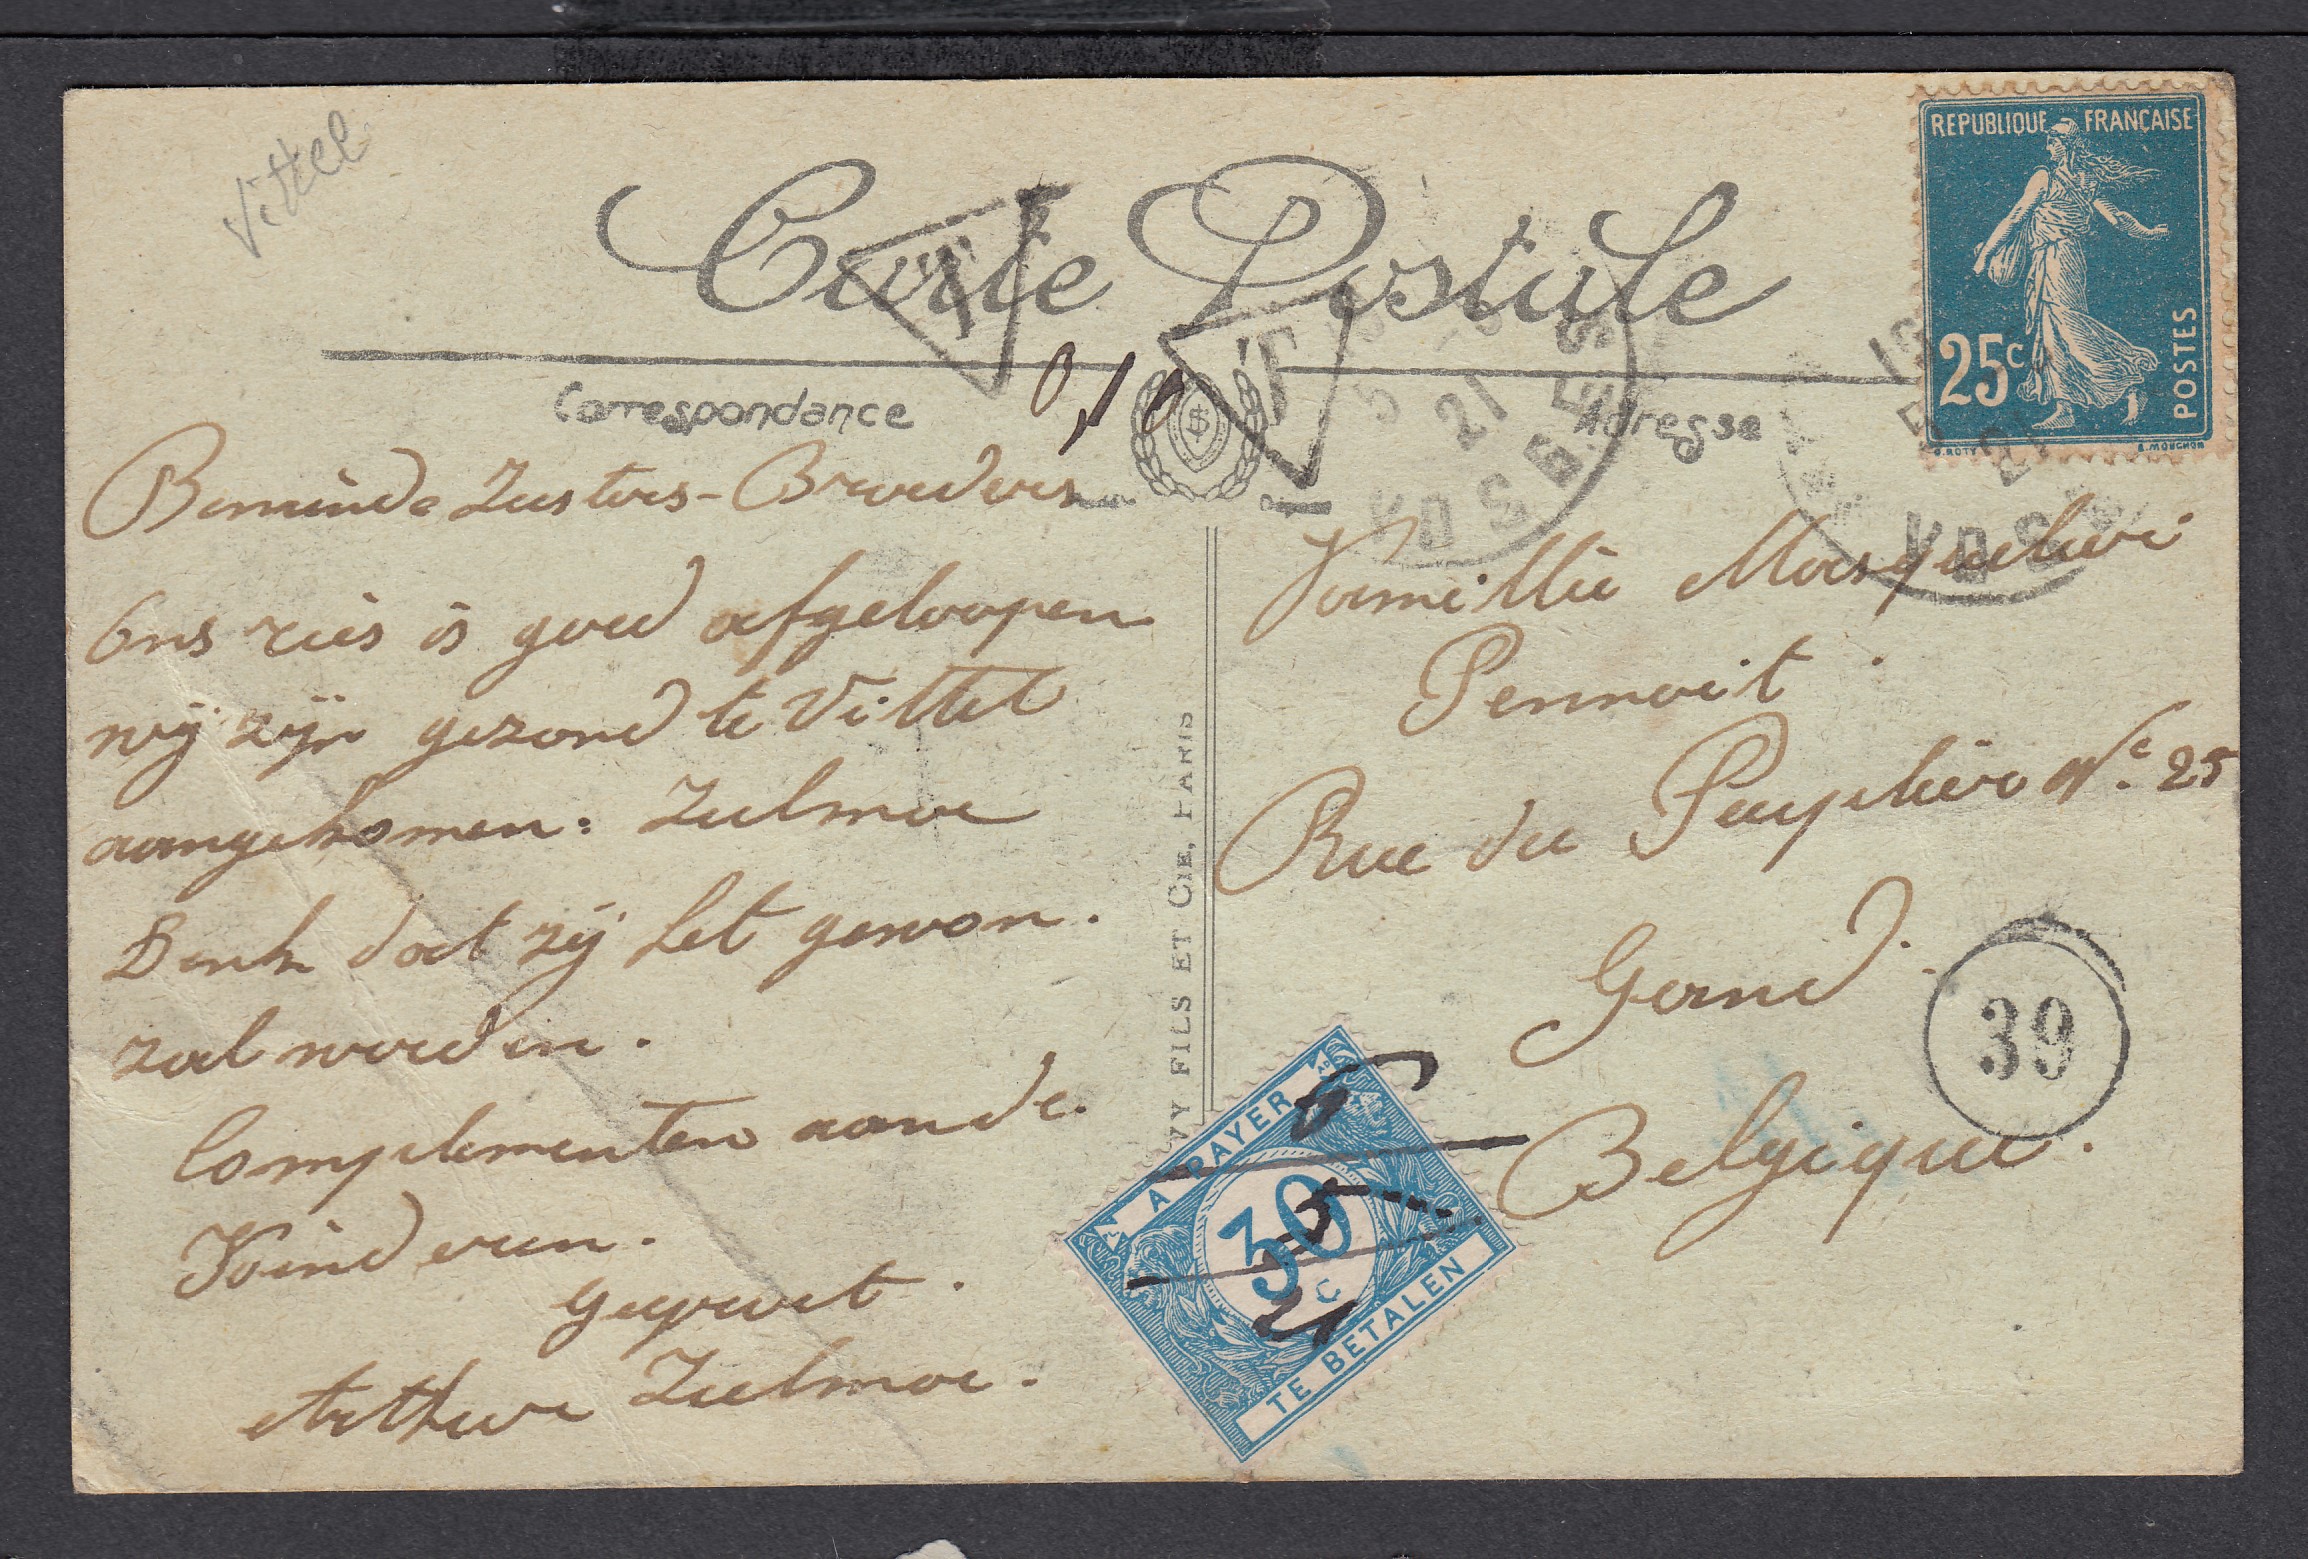 Vittel
Carte Postale
REPUBLIQUE FRANÇAISE
25c
POSTES
O. ROTY E. MOUCHON
T
T
0,10
Correspondance
Adresse
5-5
21
VOSGES
5
21
VOSGES
Beminde Zusters - Broeders
Ons reis is goed afgeloopen
wij zijn gezond te Vittel
aangekomen: Zulma
Denk dat zij het gewon.
zal worden.
Complementen aan de.
Kinderen.
Gegroet.
Arthur Zulma.
VY FILS ET CIE, PARIS
Famillie
Rue du Peuplier No 25
Gand.
Belgique.
39
A PAYER
30
C
TE BETALEN
6
5
21